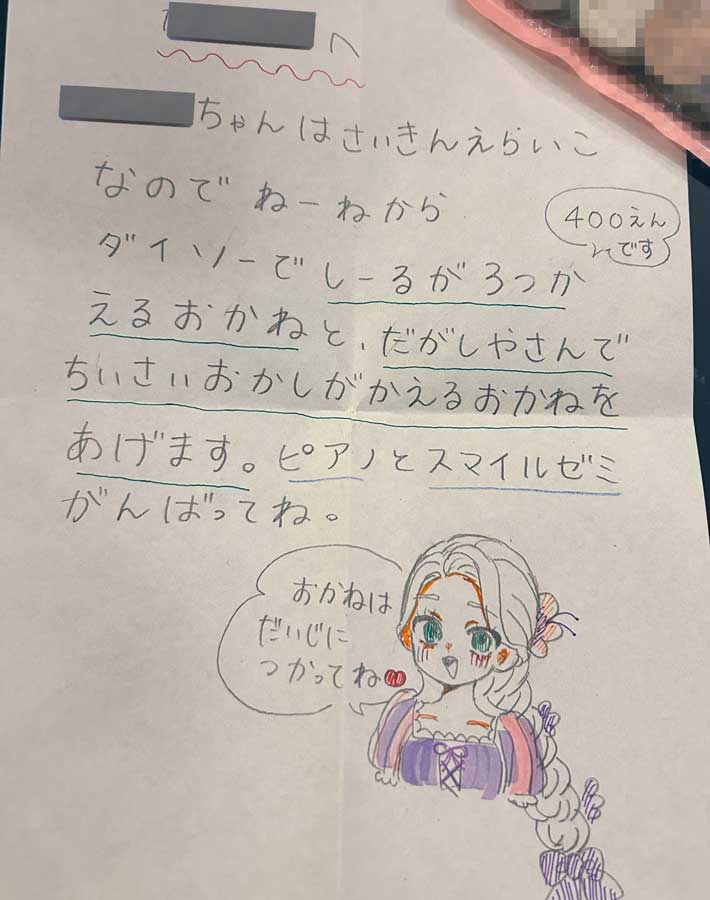 へ
ちゃんはさいきんえらいこ
なのでねーねから
400えん
です
ダイソーでしーるがろつか
えるおかねと、だがしやさんで
ちいさいおかしがかえるおかねを
あげます。ピアノとスマイルゼミ
がんばってね。
おかねは
だいじに
つかってね